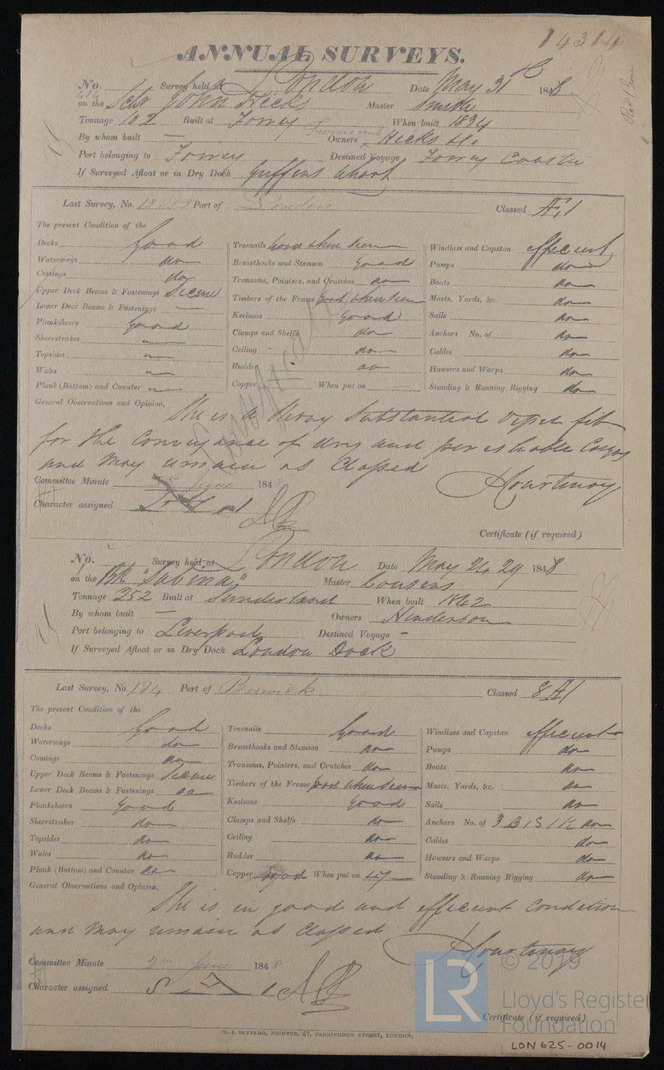 14314
ANNUAL SURVEYS.
No. Survey held at London Date May 31st 1848
on the Schr John Hicks Master Smith
Tonnage 102 Built at Fowey When built 1834
By whom built — Owners Hicks & Co.
Port belonging to Fowey Destined Voyage Fowey Coaster
If Surveyed Afloat or in Dry Dock Griffins Wharf
Last Survey, No. Port of London Classed Æ1
The present Condition of the
Decks Good Treenails good when seen Windlass and Capstan efficient
Waterways do Breasthooks and Stemson Good Pumps do
Comings do Transoms, Pointers, and Crutches do Boats do
Upper Deck Beams & Fastenings Secure Timbers of the Frame good when seen Masts, Yards, &c. do
Lower Deck Beams & Fastenings — Keelsons Good Sails do
Planksheers Good Clamps and Shelfs do Anchors No. of do
Sheerstrakes " Ceiling do Cables do
Topsides " Rudder do Hawsers and Warps do
Wales " Copper When put on Standing & Running Rigging do
Plank (Bottom) and Counter "
General Observations and Opinion,
She is a Strong Substantial Vessel fit
for the Conveyance of dry and perishable Cargoes
and May remain as Classed
Courtenay
Committee Minute June 1848
Character assigned
Certificate (if required)
No. Survey held at London Date May 24 29 1848
on the Bk "Sabina" Master Cousens
Tonnage 252 Built at Sunderland When built
By whom built — Owners Henderson
Port belonging to Liverpool Destined Voyage -
If Surveyed Afloat or in Dry Dock London Dock
Last Survey, No. 184 Port of Berwick Classed 8 A1
The present Condition of the
Decks Good Treenails Good Windlass and Capstan efficient
Waterways do Breasthooks and Stemson do Pumps do
Comings do Transoms, Pointers, and Crutches do Boats do
Upper Deck Beams & Fastenings Secure Timbers of the Frame good when seen Masts, Yards, &c. do
Lower Deck Beams & Fastenings do Keelsons Good Sails do
Planksheers Good Clamps and Shelfs do Anchors No. of 3 B 1 S 1 K do
Sheerstrakes do Ceiling do Cables do
Topsides do Rudder do Hawsers and Warps do
Wales do Copper Good When put on 47 Standing & Running Rigging do
Plank (Bottom) and Counter do
General Observations and Opinion,
She is in good and efficient Condition
and May remain as Classed
Courtenay
Committee Minute 2nd June 1848
Character assigned
Certificate (if required)
LR © 2019
Lloyd's Register
Foundation
LDN625-0014